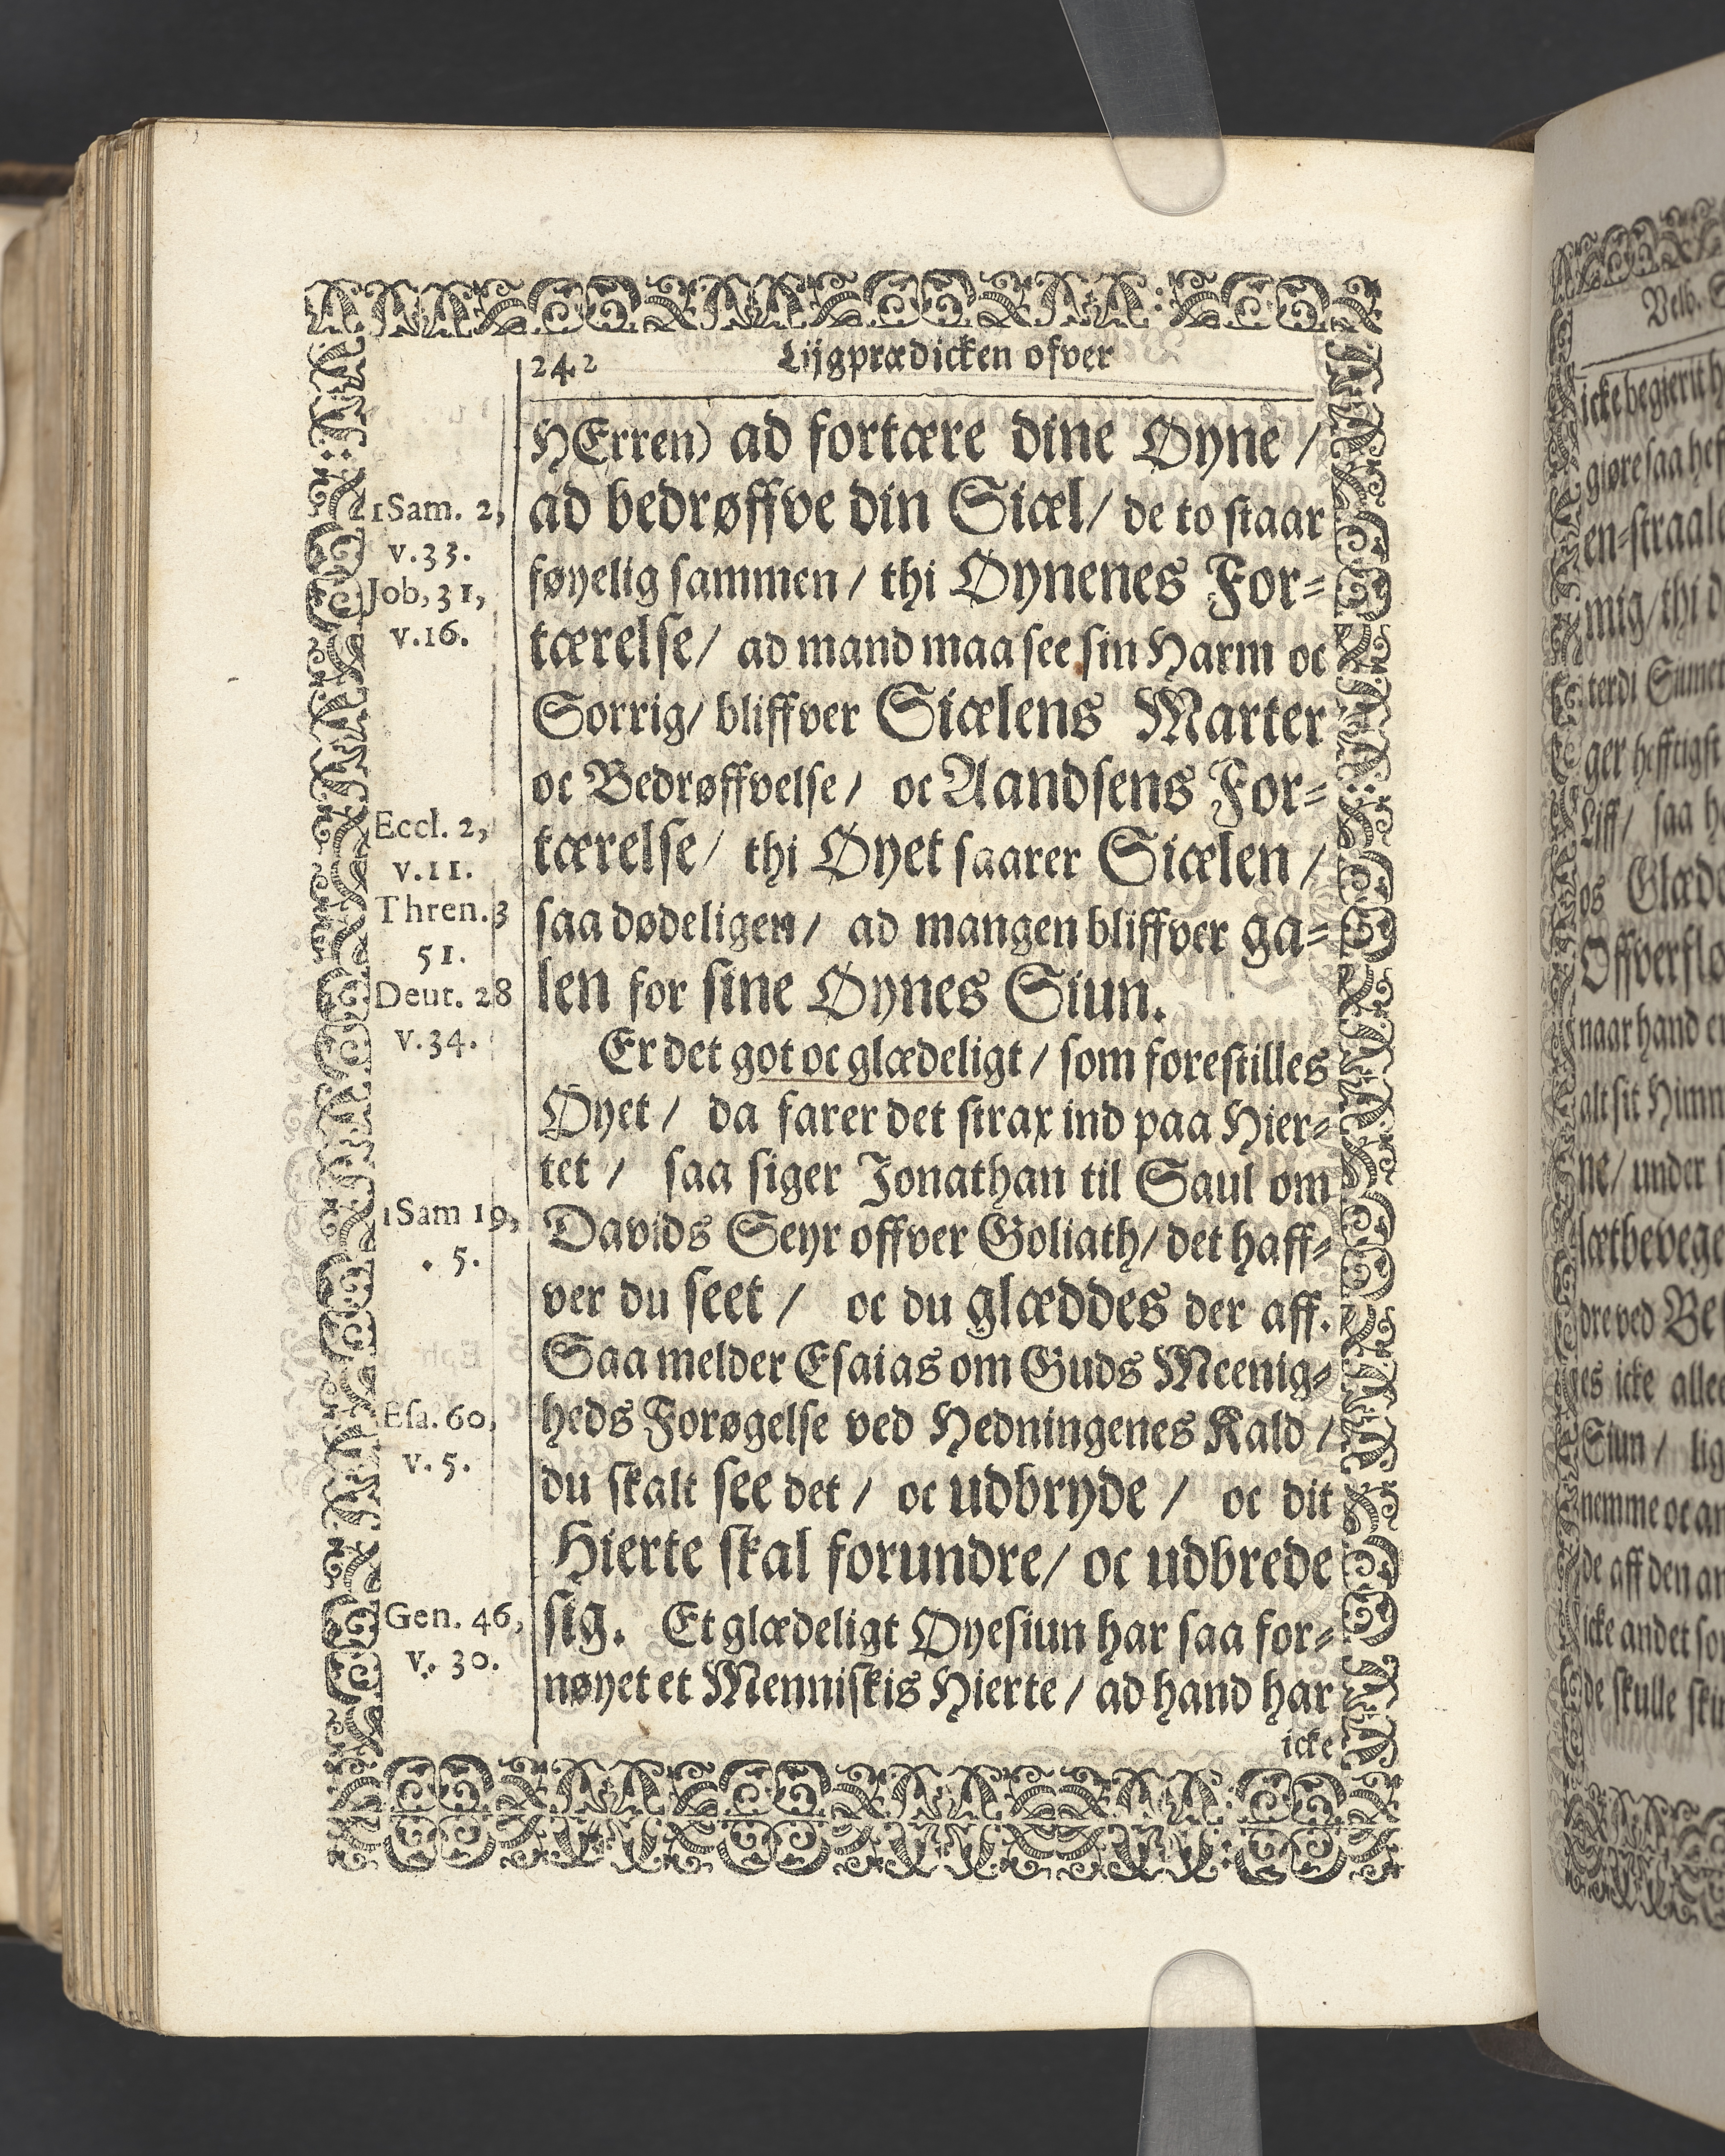 242 Lijgprædicken ofver
HErren) ad fortære dine Øyne /
ad bedrøffve din Siæl / de to staar
føyelig sammen / thi Øynenes For⸗
tærelse / ad mand maa see sin Harm oc
Sorrig / bliffver Siælens Marter
oc Bedrøffvelse / oc Aandsens For⸗
tærelse / thi Øyet saarer Siælen /
saa dødeligen / ad mangen bliffver ga⸗
len for sine Øynes Siun.
Er det got oc glædeligt / som forestilles
Øyet / da farer det strax ind paa Hier⸗
tet / saa siger Jonathan til Saul om
Davids Seyr offver Goliath / det haff⸗
ver du seet / oc du glæddes der aff.
Saa melder Esaias om Guds Meenig⸗
heds Forøgelse ved Hedningenes Kald /
du skalt see det / oc udbryde / oc dit
Hierte skal forundre / oc udbrede
sig. Et glædeligt Øyesiun har saa for⸗
nøyet et Menniskis Hierte / ad hand har
icke
1Sam. 2,
v.33.
Job, 31,
v.16.
Eccl. 2,
v.11.
Thren. 3
51.
Deut. 28
v.34.
1Sam 19,
. 5.
Esa. 60,
v. 5.
Gen. 46,
v. 30.